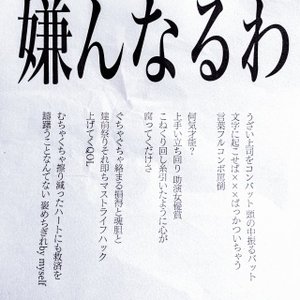 嫌んなるわ
うざい上司をコンバット 頭の中振るバット
文字に起こせば×××ばっかついちゃう
言葉フルコンボ罵倒
何気才能?
上手い立ち回り 助演女優賞
こねくり回し糸引いたように心が
腐ってくだけさ
ぐちゃぐちゃ絡まる損得と魂胆と
建前祭りそれ即ちマストライフハック
上げてくQOL
むちゃくちゃ擦り減ったハートにも救済を
躊躇うことなんてない 褒めちぎれ by myself